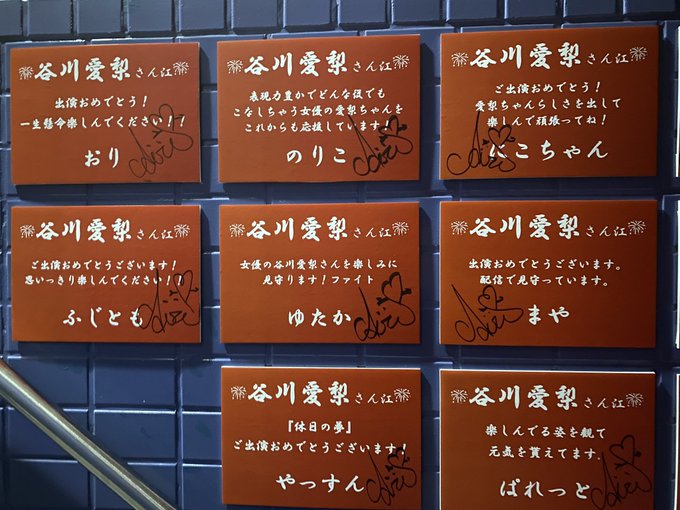 谷川愛梨さん江
出演おめでとう！
一生懸命楽しんでください！！
おり
谷川愛梨さん江
表現力豊かでどんな役でも
こなしちゃう女優の愛梨ちゃんを
これからも応援しています！
のりこ
谷川愛梨さん江
ご出演おめでとう！
愛梨ちゃんらしさを出して
楽しんで頑張ってね！
にこちゃん
谷川愛梨さん江
ご出演おめでとうございます！
思いっきり楽しんでください！！
ふじとも
谷川愛梨さん江
女優の谷川愛梨さんを楽しみに
見守ります！ファイト
ゆたか
谷川愛梨さん江
出演おめでとうございます。
配信で見守っています。
まや
谷川愛梨さん江
『休日の夢』
ご出演おめでとうございます！
やっすん
谷川愛梨さん江
楽しんでる姿を観て
元気を貰えてます。
ぱれっと